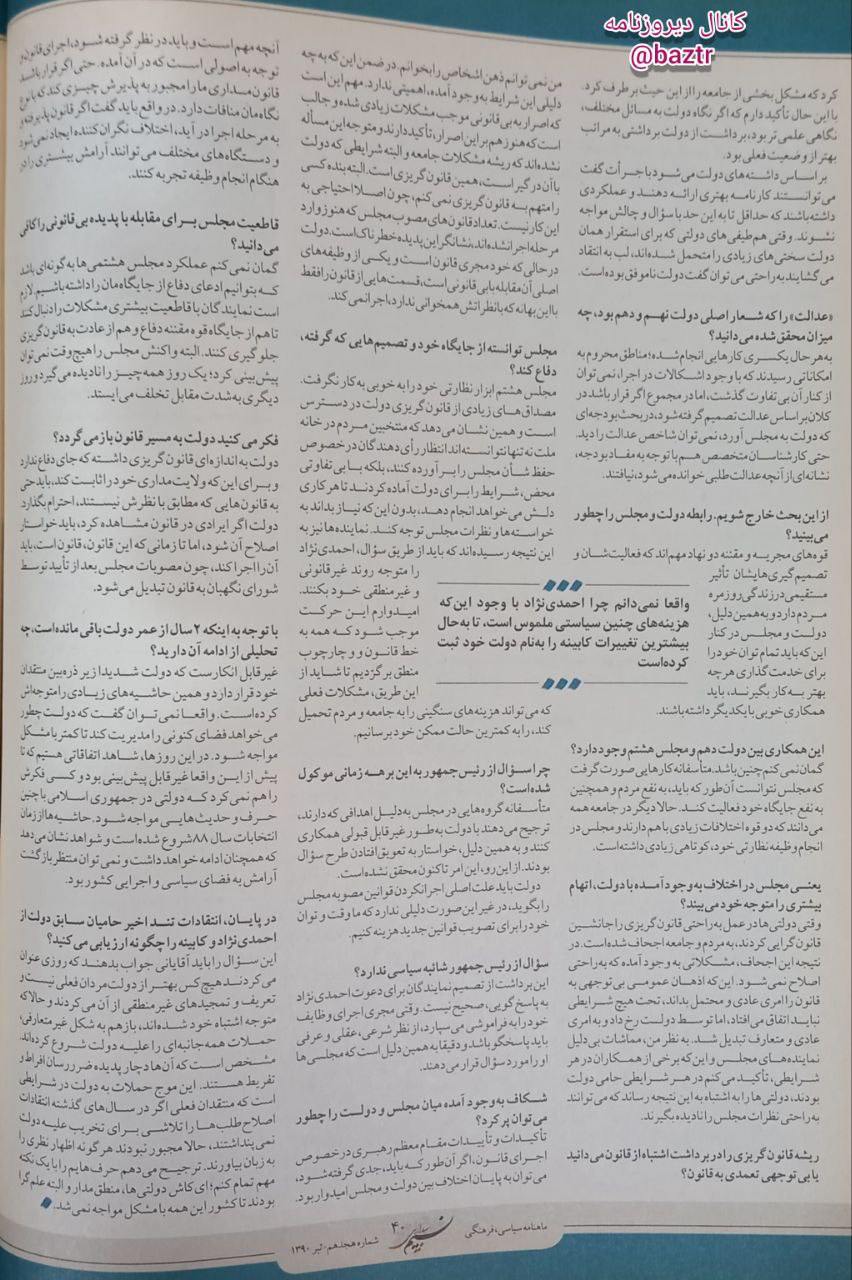 کانال دیروزنامه
@baztr
کرد که مشکل بخشی از جامعه را از این حیث برطرف کرد.
با این حال تأکید دارم که اگر نگاه دولت به مسائل مختلف،
نگاهی علمی‌تر بود، برداشت از دولت برداشتی به مراتب
بهتر از وضعیت فعلی بود.
بر اساس داشته‌های دولت می‌شود با جرأت گفت
می‌توانستند کارنامه بهتری ارائه دهند و عملکردی
داشته باشند که حداقل تا به این حد با سؤال و چالش مواجه
نشوند. وقتی هم‌طیفی‌های دولتی که برای استقرار همان
دولت سختی‌های زیادی را متحمل شده‌اند، لب به انتقاد
می‌گشایند به راحتی می‌توان گفت دولت ناموفق بوده است.
«عدالت» را که شعار اصلی دولت نهم و دهم بود، چه
میزان محقق شده می‌دانید؟
به هر حال یکسری کارهایی انجام شده؛ مناطق محروم به
امکاناتی رسیدند که با وجود اشکالات در اجرا، نمی‌توان
از کنار آن بی‌تفاوت گذشت، اما در مجموع اگر قرار باشد در
کلان بر اساس عدالت تصمیم گرفته شود، در بحث بودجه‌ای
که دولت به مجلس آورد، نمی‌توان شاخص عدالت را دید.
حتی کارشناسان متخصص هم با توجه به مفاد بودجه،
نشانه‌ای از آنچه عدالت‌طلبی خوانده می‌شود، نیافتند.
از این بحث خارج شویم. رابطه دولت و مجلس را چطور
می‌بینید؟
قوه‌های مجریه و مقننه دو نهاد مهم‌اند که فعالیت‌شان و
تصمیم‌گیری‌هایشان تأثیر
مستقیمی در زندگی روزمره
مردم دارد و به همین دلیل،
دولت و مجلس در کنار
این که باید تمام توان خود را
برای خدمت‌گذاری هر چه
بهتر به کار بگیرند، باید
همکاری خوبی با یکدیگر داشته باشند.
این همکاری بین دولت دهم و مجلس هشتم وجود دارد؟
گمان نمی‌کنم چنین باشد. متأسفانه کارهایی صورت گرفت
که مجلس نتوانست آن‌طور که باید، به نفع مردم و همچنین
به نفع جایگاه خود فعالیت کند. حالا دیگر در جامعه همه
می‌دانند که دو قوه اختلافات زیادی با هم دارند و مجلس در
انجام وظیفه نظارتی خود، کوتاهی زیادی داشته است.
یعنی مجلس در اختلاف به وجود آمده با دولت، اتهام
بیشتری را متوجه خود می‌بیند؟
وقتی دولتی‌ها در عمل به راحتی قانون‌گریزی را جانشین
قانون‌گرایی کردند، به مردم و جامعه اجحاف شده است. در
نتیجه این اجحاف، مشکلاتی به وجود آمده که به راحتی
اصلاح نمی‌شود. این که اذهان عمومی بی‌توجهی به
قانون را امری عادی و محتمل بداند، تحت هیچ شرایطی
نباید اتفاق می‌افتاد، اما توسط دولت رخ داد و به امری
عادی و متعارف تبدیل شد. به نظر من، مماشات بی‌دلیل
نماینده‌های مجلس و این که برخی از همکاران در هر
شرایطی، تأکید می‌کنم در هر شرایطی حامی دولت
بودند، دولتی‌ها را به اشتباه به این نتیجه رساند که می‌توانند
به راحتی نظرات مجلس را نادیده بگیرند.
ریشه قانون‌گریزی را در برداشت اشتباه از قانون می‌دانید
یا بی‌توجهی تعمدی به قانون؟
من نمی‌توانم ذهن اشخاص را بخوانم. در ضمن این که به چه
دلیلی این شرایط به وجود آمده، اهمیتی ندارد. مهم این است
که اصرار به بی‌قانونی موجب مشکلات زیادی شده و جالب
است که هنوز هم بر این اصرار، تأکید دارند و متوجه این مسأله
نشده‌اند که ریشه مشکلات جامعه و البته شرایطی که دولت
با آن درگیر است، همین قانون‌گریزی است. البته بنده کسی
را متهم به قانون‌گریزی نمی‌کنم، چون اصلا احتیاجی به
این کار نیست. تعداد قانون‌های مصوب مجلس که هنوز وارد
مرحله اجرا نشده‌اند، نشانگر این پدیده خطرناک است. دولت
در حالی که خود مجری قانون است و یکی از وظیفه‌های
اصلی آن مقابله با بی‌قانونی است، قسمت‌هایی از قانون را فقط
با این بهانه که با نظراتش همخوانی ندارد، اجرا نمی‌کند.
مجلس توانسته از جایگاه خود و تصمیم‌هایی که گرفته،
دفاع کند؟
مجلس هشتم ابزار نظارتی خود را به خوبی به کار نگرفت.
مصداق‌های زیادی از قانون‌گریزی دولت در دسترس
است و همین نشان می‌دهد که منتخبین مردم در خانه
ملت نه تنها نتوانسته‌اند انتظار رأی‌دهندگان در خصوص
حفظ شأن مجلس را برآورده کنند، بلکه با بی‌تفاوتی
محض، شرایط را برای دولت آماده کردند تا هر کاری
دلش می‌خواهد انجام دهد، بدون این که نیاز بداند به
خواسته‌ها و نظرات مجلس توجه کند. نماینده‌ها نیز به
این نتیجه رسیده‌اند که باید از طریق سؤال، احمدی‌نژاد
را متوجه روند غیرقانونی
و غیرمنطقی خود بکنند.
امیدوارم این حرکت
موجب شود که همه به
خط قانون و و چارچوب
منطق برگردیم تا شاید از
این طریق، مشکلات فعلی
که می‌تواند هزینه‌های سنگینی را به جامعه و مردم تحمیل
کند، را به کمترین حالت ممکن خود برسانیم.
واقعا نمی‌دانم چرا احمدی‌نژاد با وجود این‌که
هزینه‌های چنین سیاستی ملموس است، تا به‌حال
بیشترین تغییرات کابینه را به‌نام دولت خود ثبت
کرده‌است
چرا سؤال از رئیس‌جمهور به این برهه زمانی موکول
شده است؟
متأسفانه گروه‌هایی در مجلس به دلیل اهدافی که دارند،
ترجیح می‌دهند با دولت به طور غیرقابل قبولی همکاری
کنند و به همین دلیل، خواستار به تعویق افتادن طرح سؤال
بودند. از این رو، این امر تاکنون محقق نشده است.
دولت باید علت اصلی اجرا نکردن قوانین مصوبه مجلس
را بگوید، در غیر این صورت دلیلی ندارد که ما وقت و توان
خود را برای تصویب قوانین جدید هزینه کنیم.
سؤال از رئیس‌جمهور شائبه سیاسی ندارد؟
این برداشت از تصمیم نمایندگان برای دعوت احمدی‌نژاد
به پاسخ‌گویی، صحیح نیست. وقتی مجری اجرای وظایف
خود را به فراموشی می‌سپارد، از نظر شرعی، عقلی و عرفی
باید پاسخگو باشد و دقیقا به همین دلیل است که مجلسی‌ها
او را مورد سؤال قرار می‌دهند.
شکاف به وجود آمده میان مجلس و دولت را چطور
می‌توان پر کرد؟
تأکیدات و تأییدات مقام معظم رهبری در خصوص
اجرای قانون، اگر آن‌طور که باید، جدی گرفته شود،
می‌توان به پایان اختلاف بین دولت و مجلس امیدوار بود.
آنچه مهم است و باید در نظر گرفته شود، اجرای قانون و
توجه به اصولی است که در آن آمده. حتی اگر قرار باشد
قانون‌مداری ما را مجبور به پذیرش چیزی کند که با نوع
نگاه‌مان منافات دارد. در واقع باید گفت اگر قانون پذیرفته و
به مرحله اجرا در آید، اختلاف نگران‌کننده ایجاد نمی‌شود
و دستگاه‌های مختلف می‌توانند آرامش بیشتری را در
هنگام انجام وظیفه تجربه کنند.
قاطعیت مجلس برای مقابله با پدیده بی‌قانونی را کافی
می‌دانید؟
گمان نمی‌کنم عملکرد مجلس هشتمی‌ها به گونه‌ای باشد
که بتوانیم ادعای دفاع از جایگاه‌مان را داشته باشیم. لازم
است نمایندگان با قاطعیت بیشتری مشکلات را دنبال کنند
تا هم از جایگاه قوه مقننه دفاع و هم از عادت به قانون‌گریزی
جلوگیری کنند. البته واکنش مجلس را هیچ وقت نمی‌توان
پیش‌بینی کرد؛ یک روز همه چیز را نادیده می‌گیرد و روز
دیگری به شدت مقابل تخلف می‌ایستد.
فکر می‌کنید دولت به مسیر قانون بازمی‌گردد؟
دولت به اندازه‌ای قانون‌گریزی داشته که جای دفاع ندارد
و برای این که ولایت‌مداری خود را ثابت کند، باید حتی
به قانون‌هایی که مطابق با نظرش نیستند، احترام بگذارد.
دولت اگر ایرادی در قانون مشاهده کرد، باید خواستار
اصلاح آن شود، اما تا زمانی که این قانون، قانون است، باید
آن را اجرا کند، چون مصوبات مجلس بعد از تأیید توسط
شورای نگهبان به قانون تبدیل می‌شود.
با توجه به اینکه ۲ سال از عمر دولت باقی مانده است، چه
تحلیلی از ادامه آن دارید؟
غیرقابل انکار است که دولت شدیدا زیر ذره‌بین منتقدان
خود قرار دارد و همین حاشیه‌های زیادی را متوجه‌اش
کرده است. واقعا نمی‌توان گفت که دولت چطور
می‌خواهد فضای کنونی را مدیریت کند تا کمتر با مشکل
مواجه شود. در این روزها، شاهد اتفاقاتی هستیم که تا
پیش از این واقعا غیرقابل پیش‌بینی بود و کسی فکرش
را هم نمی‌کرد که دولتی در جمهوری اسلامی با چنین
حرف و حدیث‌هایی مواجه شود. حاشیه‌ها از زمان
انتخابات سال ۸۸ شروع شده است و شواهد نشان می‌دهد
که همچنان ادامه خواهد داشت و نمی‌توان منتظر بازگشت
آرامش به فضای سیاسی و اجرایی کشور بود.
در پایان، انتقادات تند اخیر حامیان سابق دولت از
احمدی‌نژاد و کابینه را چگونه ارزیابی می‌کنید؟
این سؤال را باید آقایانی جواب بدهند که روزی عنوان
می‌کردند هیچ کس بهتر از دولت‌مردان فعلی نیست و
تعریف و تمجیدهای غیرمنطقی از آن می‌کردند و حالا که
متوجه اشتباه خود شده‌اند، باز هم به شکل غیرمتعارفی،
حملات همه جانبه‌ای را علیه دولت شروع کرده‌اند.
مشخص است که آن‌ها دچار پدیده ضرررسان افراط و
تفریط هستند. این موج حملات به دولت در شرایطی
است که منتقدان فعلی اگر در سال‌های گذشته انتقادات
اصلاح‌طلب‌ها را تلاشی برای تخریب علیه دولت
نمی‌پنداشتند، حالا مجبور نبودند هرگونه اظهار نظری را
به زبان بیاورند. ترجیح می‌دهم حرف‌هایم را با یک نکته
مهم تمام کنم؛ ای کاش دولتی‌ها، منطق‌مدار و البته علم‌گرا
بودند تا کشور این همه با مشکل مواجه نمی‌شد.
ماهنامه سیاسی، فرهنگی
۴۰
شماره هجدهم، تیر ۱۳۹۰